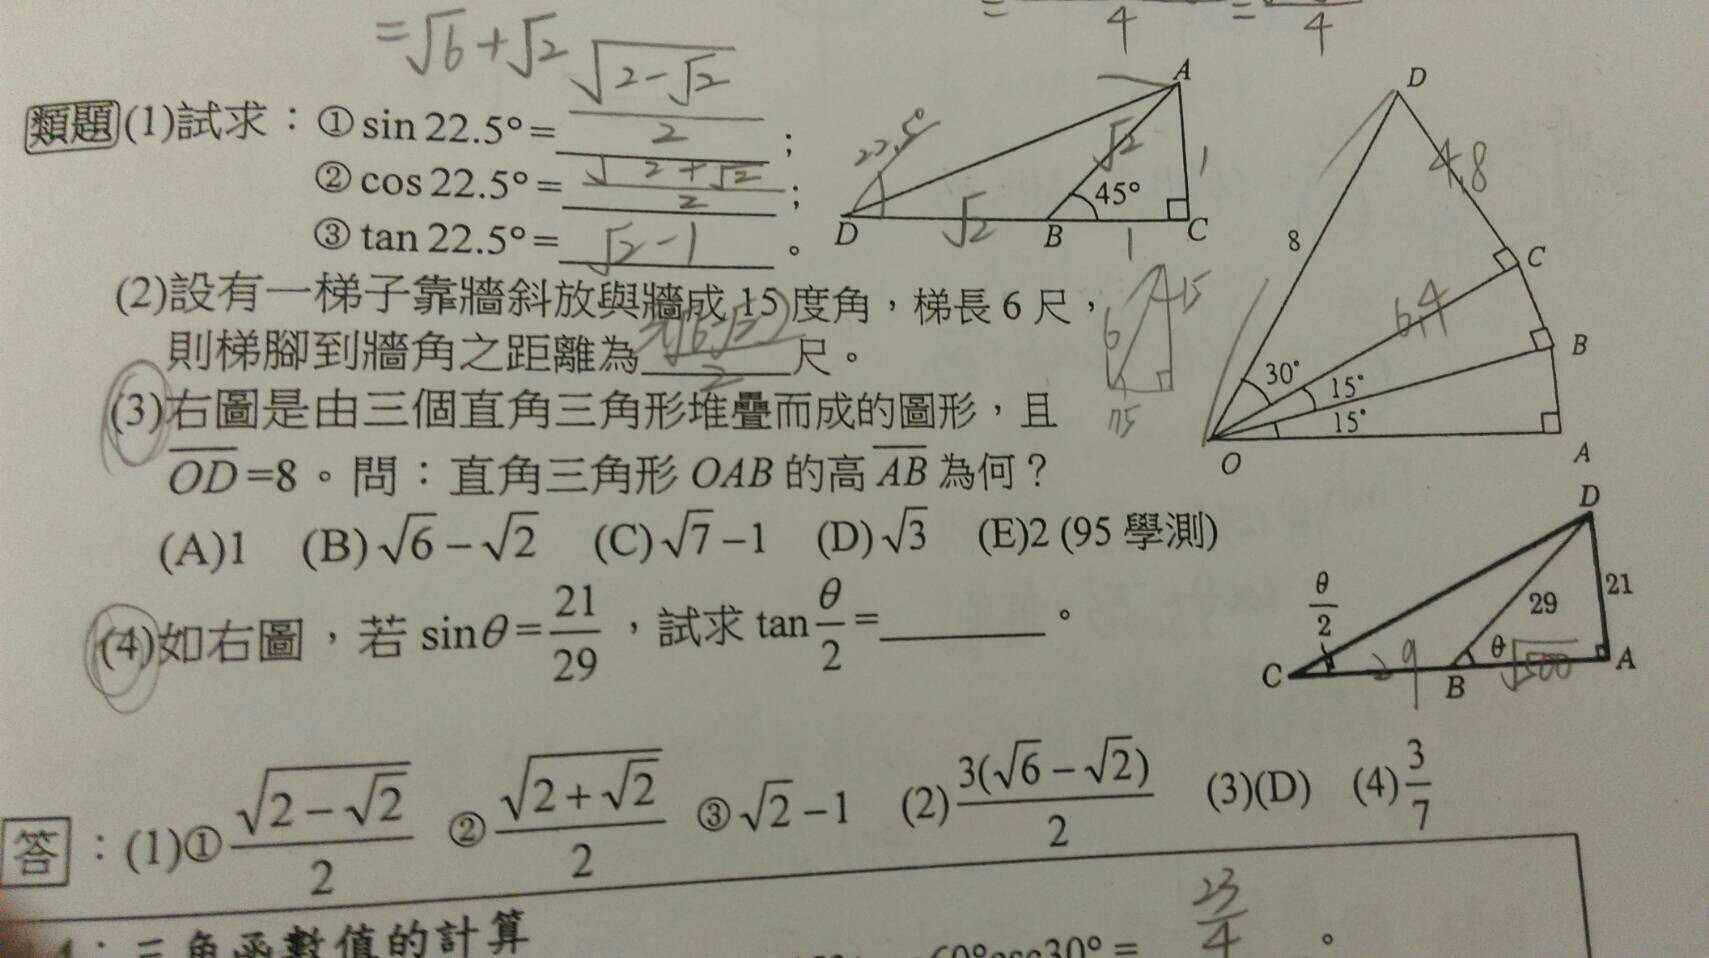 =√6+√2
= 4 = 4
類題(1)試求：①sin 22.5°= √(2-√2)/2 ；
②cos 22.5°= √(2+√2)/2 ；
③tan 22.5°= √2-1 。
A
22.5° √2 1
45°
D √2 B 1 C
(2)設有一梯子靠牆斜放與牆成 15 度角，梯長 6 尺，
則梯腳到牆角之距離為 尺。
6 15
75
(3)右圖是由三個直角三角形堆疊而成的圖形，且
OD=8。問：直角三角形 OAB 的高 AB 為何？
(A)1 (B)√6-√2 (C)√7-1 (D)√3 (E)2 (95 學測)
D
8 4.8
C
6.4
B
30° 15°
15°
O A
(4)如右圖，若 sinθ=21/29，試求 tan θ/2= 。
D
θ/2 29 21
C 29 B θ √500 A
答：(1)①√(2-√2)/2 ②√(2+√2)/2 ③√2-1 (2)3(√6-√2)/2 (3)(D) (4)3/7
三角函數值的計算
30°= 23/4 。